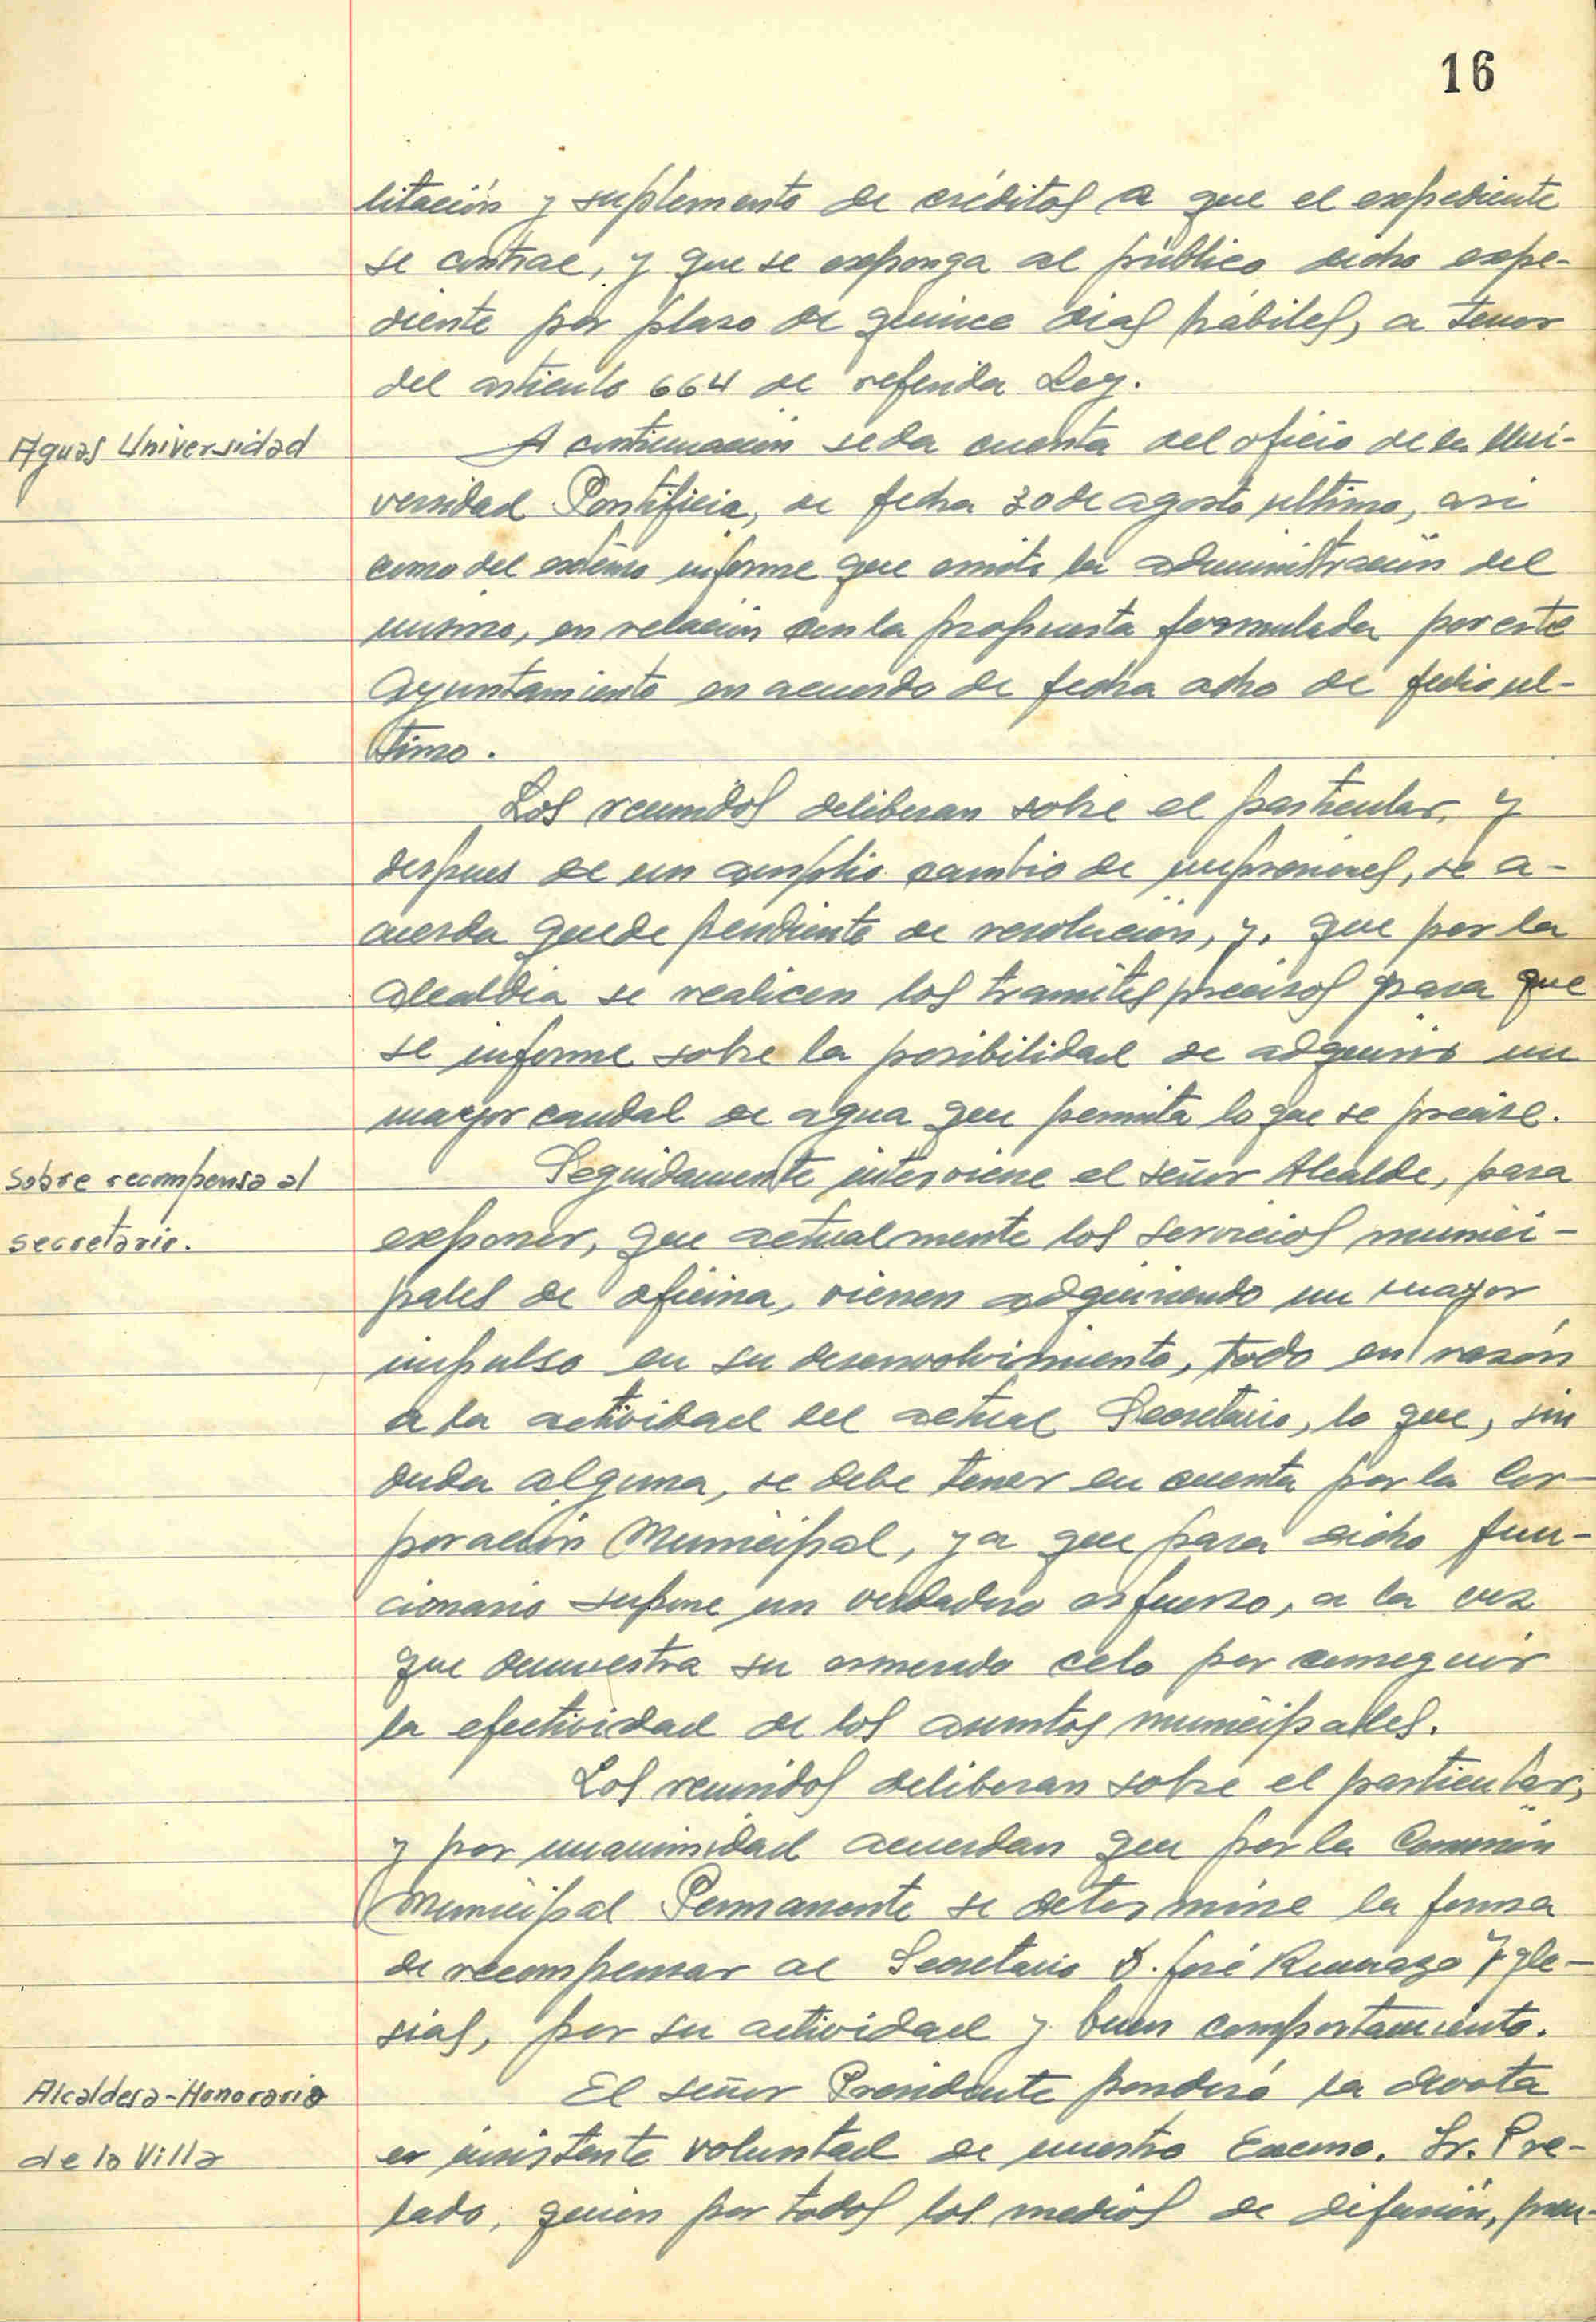 16
litación y suplemento de créditos a que el expediente
se contrae, y que se exponga al público dicho expe-
diente por plazo de quince dias hábiles, a tenor
del articulo 664 de referida Ley.
Aguas Universidad
A continuación se da cuenta del oficio de la Uni-
versidad Pontificia, de fecha 30 de agosto ultimo, asi
como del extenso informe que emite la administración del
mismo, en relación con la propuesta formulada por este
Ayuntamiento en acuerdo de fecha ocho de julio ul-
timo.
Los reunidos deliberan sobre el particular, y
despues de un amplio cambio de impresiones, se a-
cuerda quede pendiente de resolución, y, que por la
Alcaldia se realicen los tramites precisos para que
se informe sobre la posibilidad de adquirir un
mayor caudal de agua que permita lo que se precise.
Sobre recompensa al
secretario.
Seguidamente interviene el señor Alcalde, para
exponer, que actualmente los servicios munici-
pales de oficina, vienen adquiriendo un mayor
impulso en su desenvolvimiento, todo en razón
a la actividad del actual Secretario, lo que, sin
duda alguna, se debe tener en cuenta por la Cor-
poración Municipal, ya que para dicho fun-
cionario supone un verdadero esfuerzo, a la vez
que demuestra su esmerado celo por conseguir
la efectividad de los asuntos municipales.
Los reunidos deliberan sobre el particular,
y por unanimidad acuerdan que por la Comisión
Municipal Permanente se determine la forma
de recompensar al Secretario D. José Ygle-
sias, por su actividad y buen comportamiento.
Alcaldesa-Honoraria
de la Villa
El señor Presidente ponderó la devota
e insistente voluntad de nuestro Excmo. Sr. Pre-
lado, quien por todos los medios de difusión, pren-